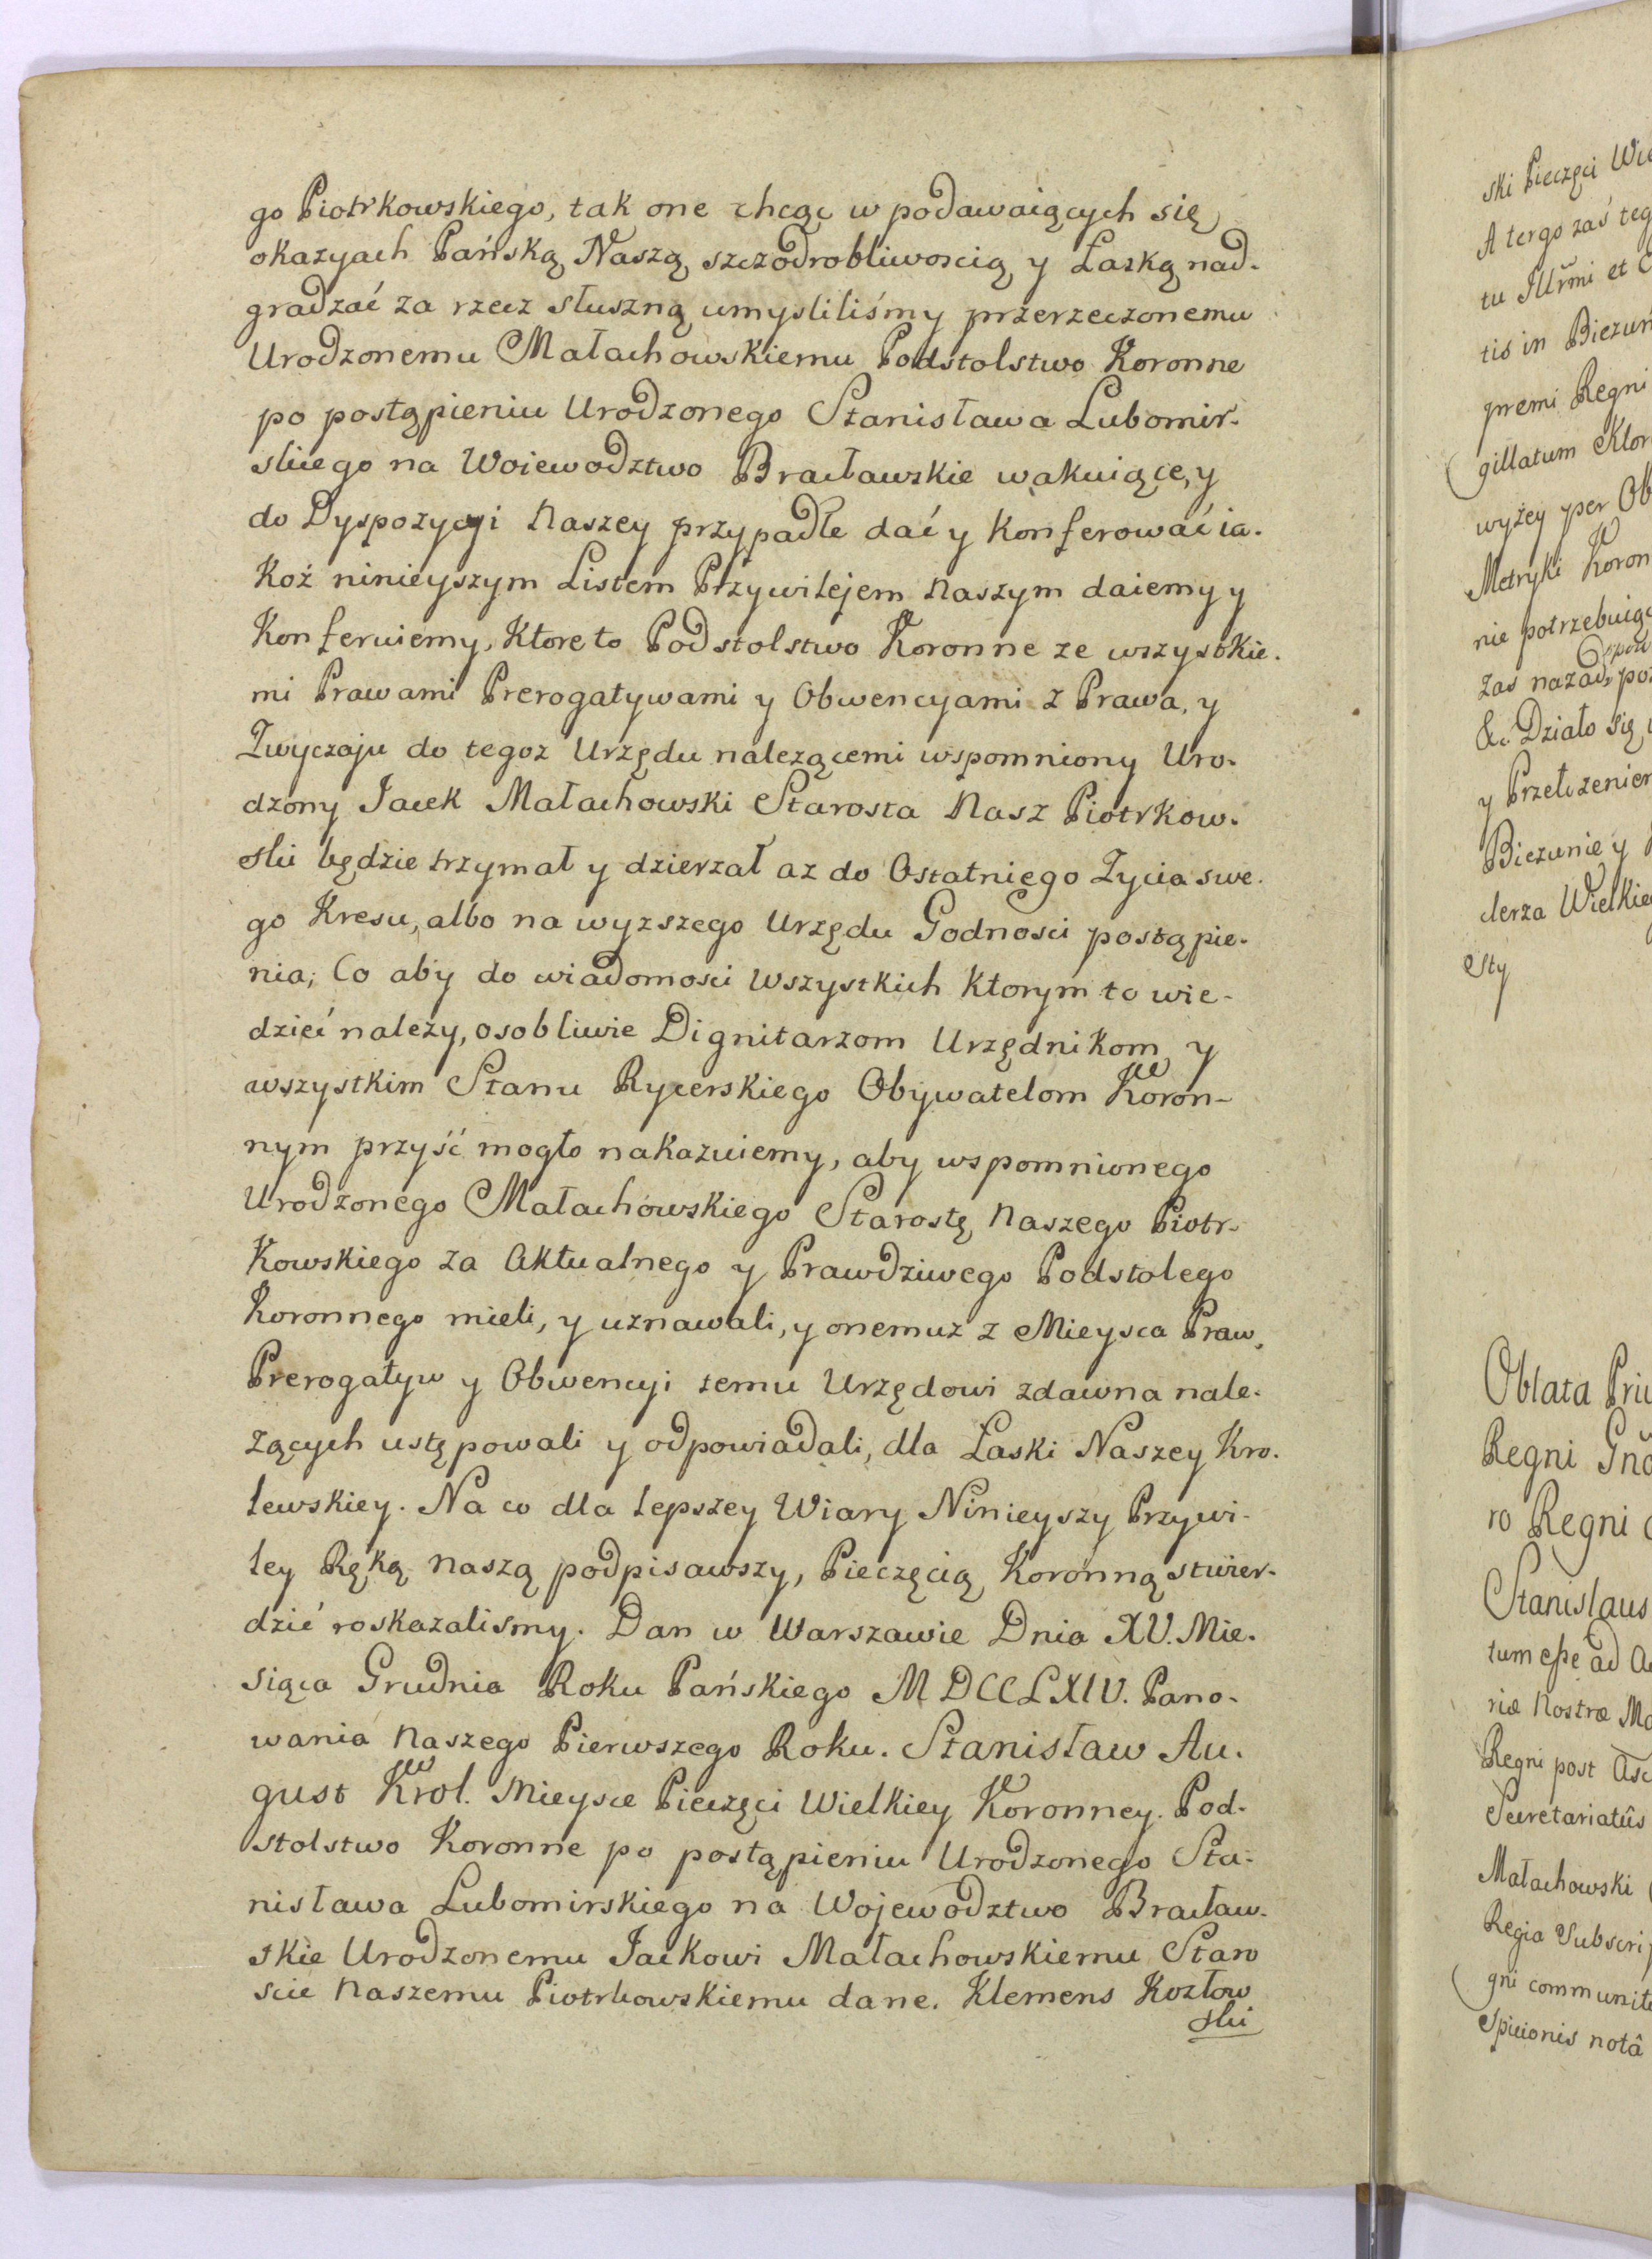 go Piotrkowskiego, tak one chcąc w podawaiących się
okazyach Pańską Naszą szczodrobliwoscią y Łaską nad-
gradzać za rzecz słuszną umysliliśmy przerzeczonemu
Urodzonemu Małachowskiemu Podstolstwo Koronne
po postąpieniu Urodzonego Stanisława Lubomir-
skiego na Woiewodztwo Bracławskie wakuiące, y
do Dyspozycyi Naszey przypadłe dać y Konferować ia-
Koż ninieyszym Listem Przywilejem Naszym daiemy y
Konferuiemy, Ktore to Podstolstwo Koronne ze wszystkie-
mi Prawami Prerogatywami y Obwencyami z Prawa, y
Zwyczaju do tegoz Urzędu nalezącemi wspomniony Uro-
dzony Jacek Małachowski Starosta Nasz Piotrkow-
ski będzie trzymał y dzierzał az do Ostatniego Zycia swe-
go Kresu, albo na wyzszego Urzędu Godnosci postąpie-
nia; Co aby do wiadomosci Wszystkich Ktorym to wie-
dzieć nalezy, osobliwie Dignitarzom Urzędnikom y
wszystkim Stanu Rycerskiego Obywatelom Koron-
nym przyść mogło nakazuiemy, aby wspomnionego
Urodzonego Małachowskiego Starostę Naszego Piotr-
Kowskiego za Aktualnego y Prawdziwego Podstolego
Koronnego mieli, y uznawali, y onemuz z Mieysca Praw,
Prerogatyw y Obwencyi temu Urzędowi zdawna nale-
zących ustępowali y odpowiadali, dla Łaski Naszey Kro-
lewskiey. Na co dla lepszey Wiary Ninieyszy Przywi-
ley Ręką Naszą podpisawszy, Pieczęcią Koronną stwier-
dzić roskazalismy. Dan w Warszawie Dnia XV. Mie-
siąca Grudnia Roku Pańskiego MDCCLXIV. Pano-
wania Naszego Pierwszego Roku. Stanisław Au-
gust Krol. Mieysce Pieczęci Wielkiey Koronney. Pod-
stolstwo Koronne po postąpieniu Urodzonego Sta-
nisława Lubomirskiego na Wojewodztwo Bracław-
skie Urodzonemu Jackowi Małachowskiemu Staro
scie Naszemu Piotrkowskiemu dane. Klemens Kozłow
ski
ski Pieczęci
A tergo zaś
tu Illrmi et
tis in
premi Regni
gillatum
wyżey per
Metryki
nie
zas nazad
&c Działo się
y
Biezunie y
clerza
sty
Oblata
Regni
ro Regni
Stanislaus
tum esse ad
riæ Nostræ
Regni post
Secretariatûs
Małachowski
Regia
gni
spicionis notâ